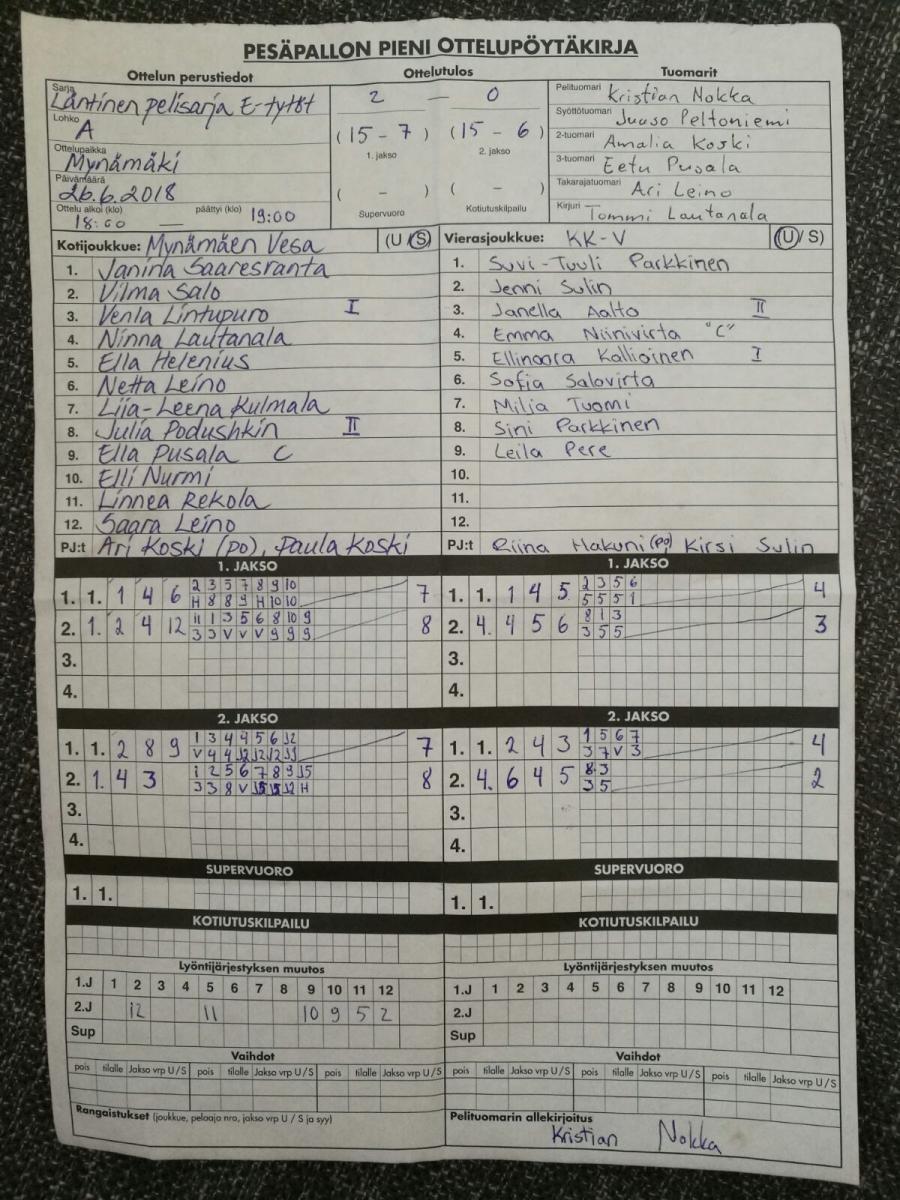 PESÄPALLON PIENI OTTELUPÖYTÄKIRJA
Ottelun perustiedot
Sarja Läntinen pelisarja E-tytöt
Lohko A
Ottelupaikka Mynämäki
Päivämäärä 26.6.2018
Ottelu alkoi (klo) 18:00 — päättyi (klo) 19:00
Ottelutulos
2 — 0
(15 - 7) (15 - 6)
1. jakso 2. jakso
( - ) ( - )
Supervuoro Kotiutuskilpailu
Tuomarit
Pelituomari Kristian Nokka
Syöttötuomari Juuso Peltoniemi
2-tuomari Amalia Koski
3-tuomari Eetu Pusala
Takarajatuomari Ari Leino
Kirjuri Tommi Lautanala
Kotijoukkue: Mynämäen Vesa (U/S)
1. Janina Saaresranta
2. Vilma Salo
3. Venla Lintupuro I
4. Ninna Lautanala
5. Ella Helenius
6. Netta Leino
7. Liia-Leena Kulmala
8. Julia Podushkin II
9. Ella Pusala C
10. Elli Nurmi
11. Linnea Rekola
12. Saara Leino
PJ:t Ari Koski (po), Paula Koski
Vierasjoukkue: KK-V (U/S)
1. Suvi-Tuuli Parkkinen
2. Jenni Sulin
3. Janella Aalto II
4. Emma Niinivirta "C"
5. Ellinoora Kallioinen I
6. Sofia Salovirta
7. Milja Tuomi
8. Sini Parkkinen
9. Leila Pere
10.
11.
12.
PJ:t Riina Hakuni (po) Kirsi Sulin
1. JAKSO
1. 1. 1 4 6 2 3 5 7 8 9 10 7
H 8 8 9 H 10 10
2. 1. 2 4 12 11 1 3 5 6 8 10 9 8
3 3 V V V 9 9 9
3.
4.
1. JAKSO
1. 1. 1 4 5 2 3 5 6 4
5 5 5 1
2. 4. 4 5 6 8 1 3 3
3 5 5
3.
4.
2. JAKSO
1. 1. 2 8 9 1 3 4 4 5 6 12 7
V 4 4 12 12 12
2. 1. 4 3 1 2 5 6 7 8 9 8
3 3 8 V 12 H
3.
4.
2. JAKSO
1. 1. 2 4 3 1 5 6 7 4
3 7 V 3
2. 4. 6 4 5 8 3 2
3 5
3.
4.
SUPERVUORO
1. 1.
SUPERVUORO
1. 1.
KOTIUTUSKILPAILU
KOTIUTUSKILPAILU
Lyöntijärjestyksen muutos
1.J 1 2 3 4 5 6 7 8 9 10 11 12
2.J 12 11 10 9 5 2
Sup
Lyöntijärjestyksen muutos
1.J 1 2 3 4 5 6 7 8 9 10 11 12
2.J
Sup
Vaihdot
pois tilalle Jakso vrp U/S pois tilalle Jakso vrp U/S pois tilalle Jakso vrp U/S
Vaihdot
pois tilalle Jakso vrp U/S pois tilalle Jakso vrp U/S pois tilalle Jakso vrp U/S
Rangaistukset (joukkue, pelaaja nro, jakso vrp U / S ja syy)
Pelituomarin allekirjoitus
Kristian Nokka